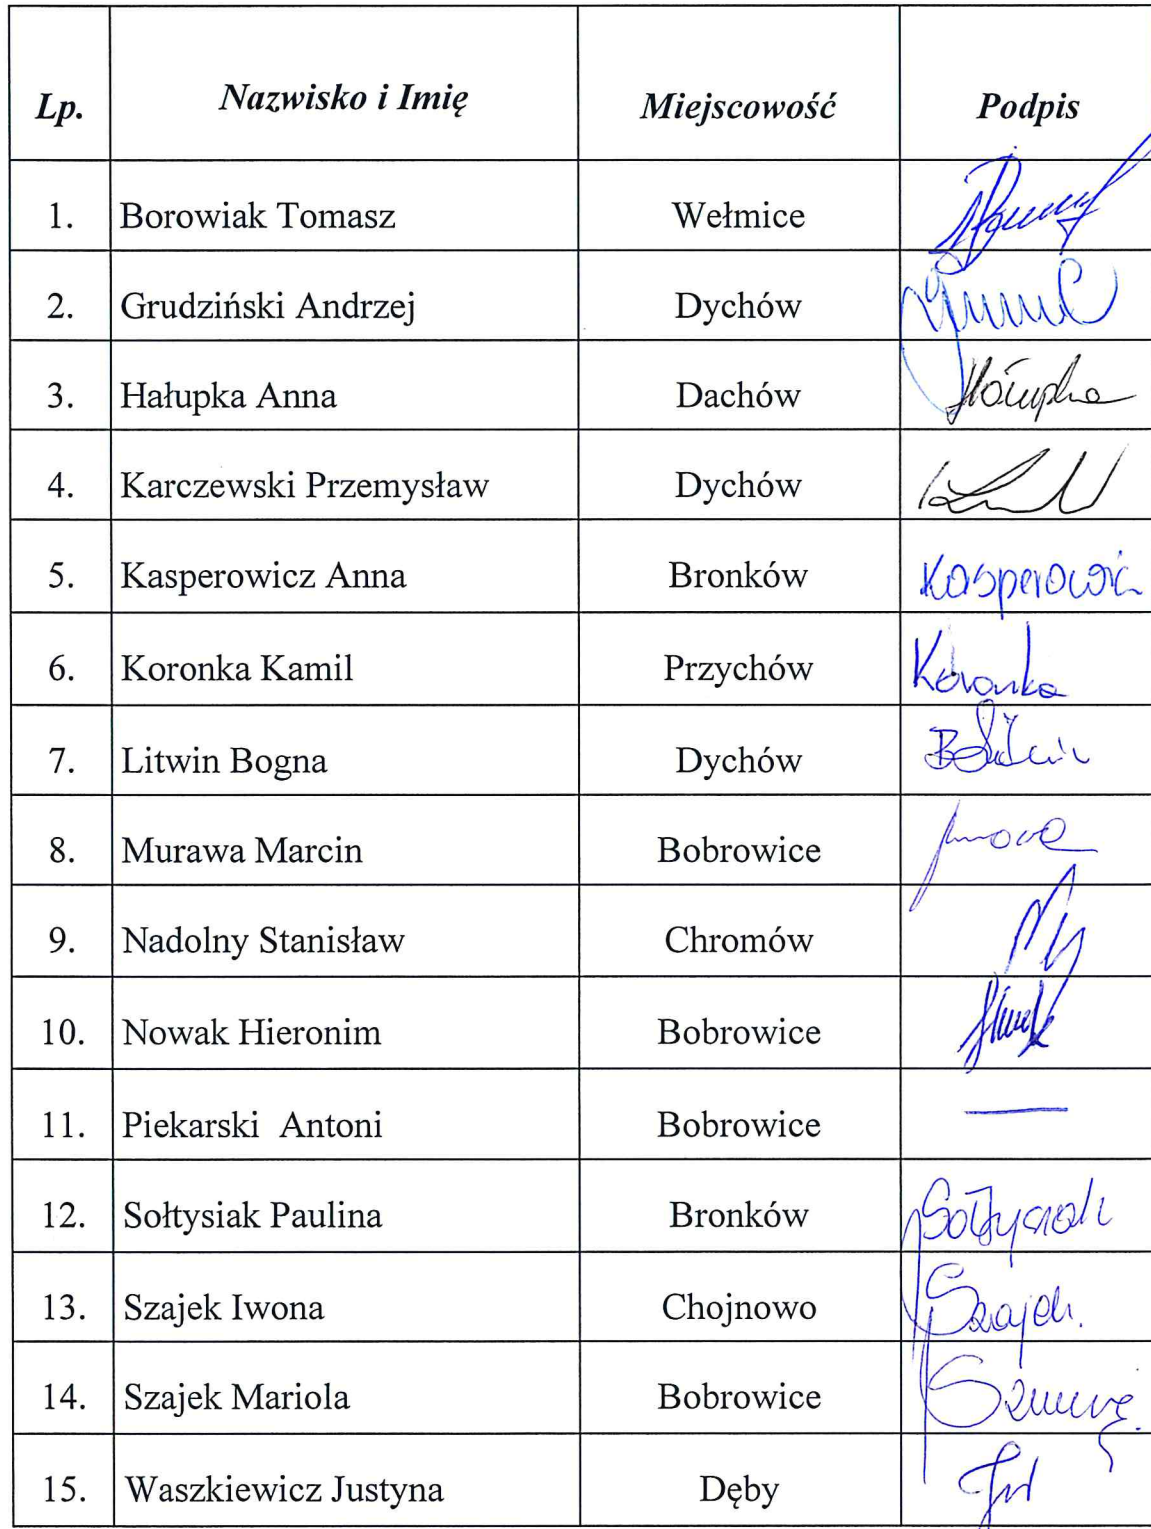 Lp. Nazwisko i Imię Miejscowość Podpis
1. Borowiak Tomasz Wełmice
2. Grudziński Andrzej Dychów
3. Hałupka Anna Dachów Hałupka
4. Karczewski Przemysław Dychów
5. Kasperowicz Anna Bronków Kasperowicz
6. Koronka Kamil Przychów Koronka
7. Litwin Bogna Dychów BLitwin
8. Murawa Marcin Bobrowice
9. Nadolny Stanisław Chromów
10. Nowak Hieronim Bobrowice
11. Piekarski Antoni Bobrowice —
12. Sołtysiak Paulina Bronków Sołtysiak
13. Szajek Iwona Chojnowo Szajek.
14. Szajek Mariola Bobrowice
15. Waszkiewicz Justyna Dęby